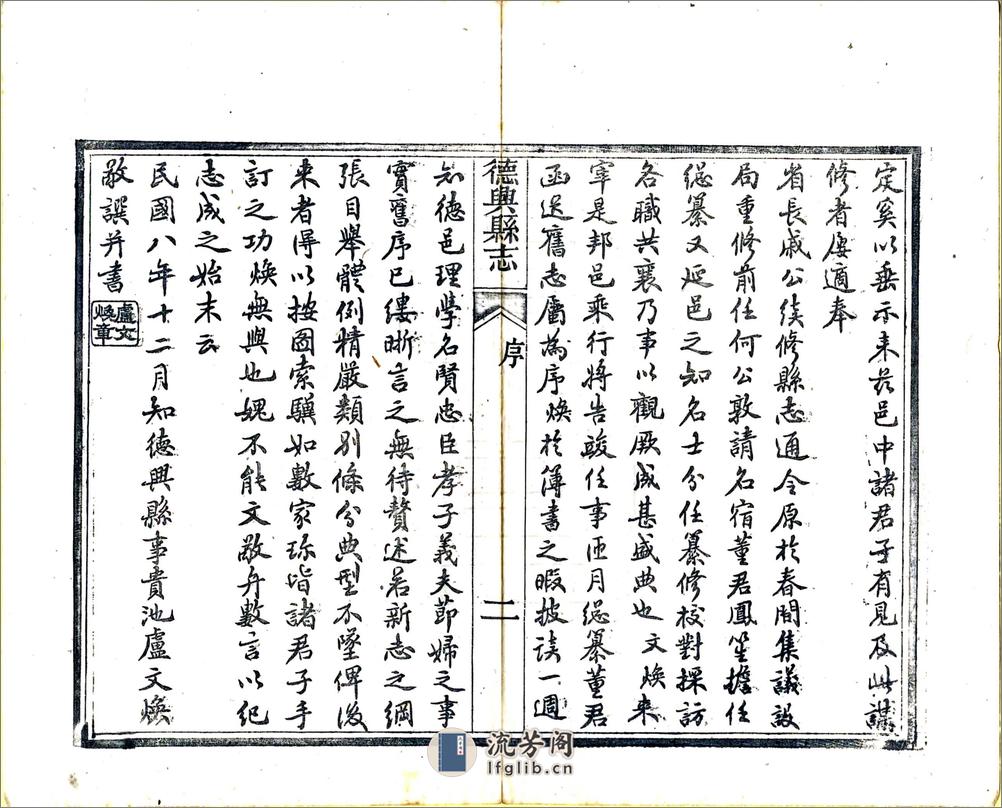 定奚以垂示來茲邑中諸君子有見及此謀
修者屢適奉
省長戚公續修縣志通令原於春間集議設
局重修前任何公敦請名宿董君鳳笙擔任
總纂又延邑之知名士分任纂修校對採訪
各職共襄乃事以觀厥成甚盛典也文煥來
宰是邦邑乘行將告竣任事匝月總纂董君
函送舊志屬為序煥於簿書之暇披讀一週
德興縣志
序
二
知德邑理學名賢忠臣孝子義夫節婦之事
實舊序已縷晰言之無待贅述若新志之綱
張目舉體例精嚴類別條分典型不墜俾後
來者得以按圖索驥如數家珍皆諸君子手
訂之功煥無與也媿不能文敬弁數言以紀
志成之始末云
民國八年十二月知德興縣事貴池盧文煥
敬譔并書
盧文煥章
流芳阁
lfglib.cn